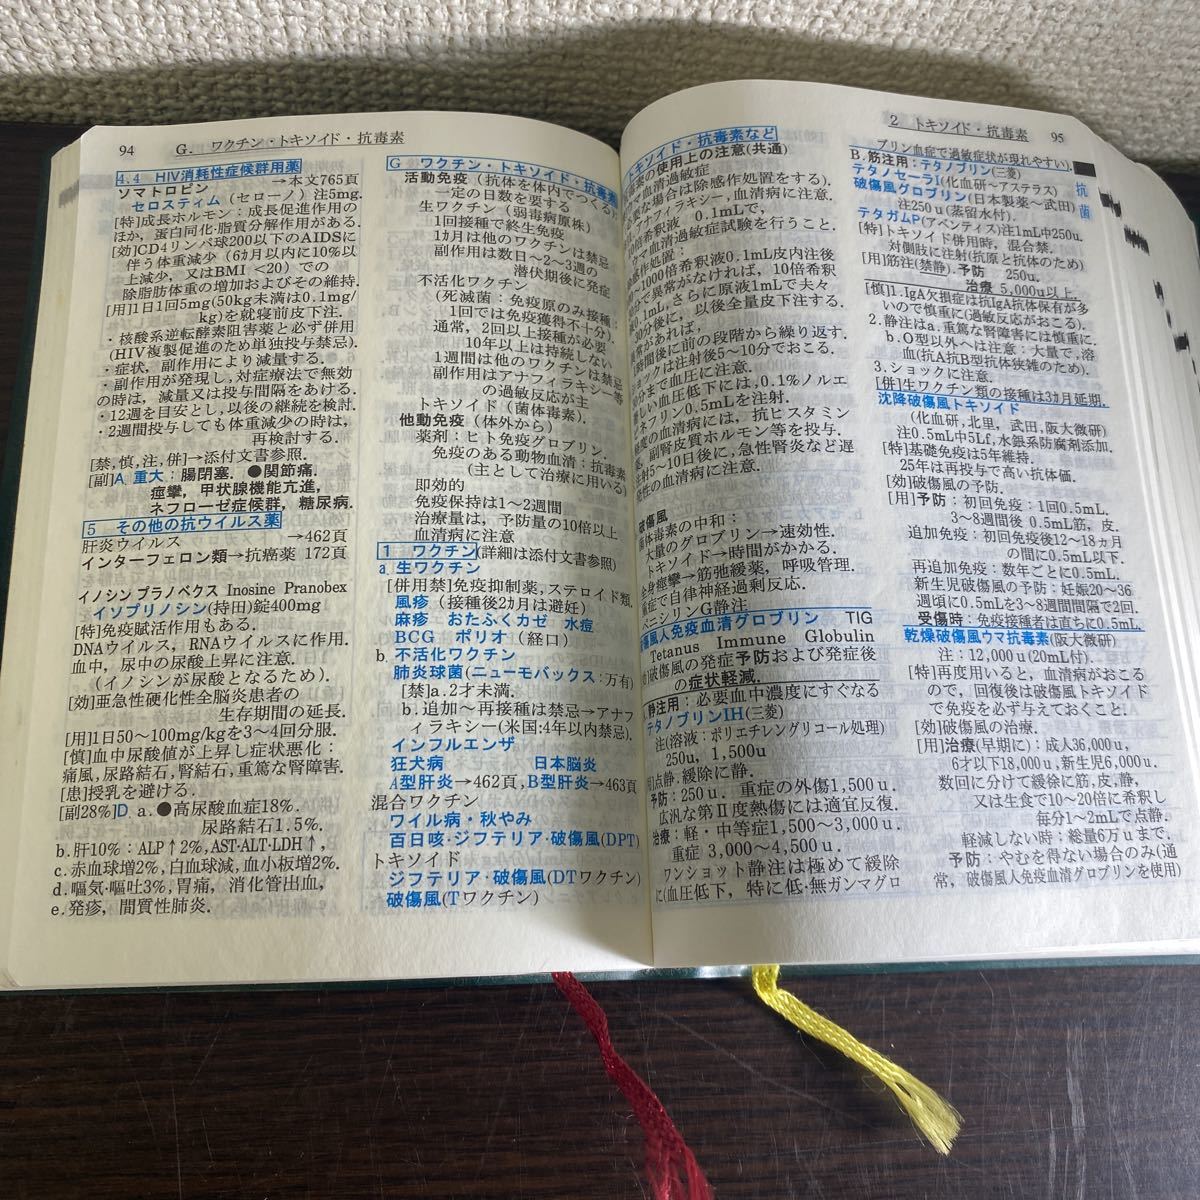 94
G. ワクチン・トキソイド・抗毒素
4.4 HIV消耗性症候群用薬
ソマトロピン →本文765頁
セロスティム(セローノ)注5mg.
[特]成長ホルモン：成長促進作用の
ほか，蛋白同化・脂質分解作用がある.
[効]CD4リンパ球200以下のAIDSに
伴う体重減少(6ヵ月以内に10%以
上減少，又はBMI <20)での
除脂肪体重の増加およびその維持.
[用]1日1回5mg(50kg未満は0.1mg/
kg)を就寝前皮下注.
・核酸系逆転酵素阻害薬と必ず併用
(HIV複製促進のため単独投与禁忌).
・症状，副作用により減量する.
・副作用が発現し，対症療法で無効
の時は，減量又は投与間隔をあける.
・12週を目安とし，以後の継続を検討.
・2週間投与しても体重減少の時は，
再検討する.
[禁,慎,注,併]→添付文書参照.
[副]A 重大：腸閉塞. ●関節痛.
痙攣，甲状腺機能亢進，
ネフローゼ症候群，糖尿病.
5 その他の抗ウイルス薬
肝炎ウイルス →462頁
インターフェロン類→抗癌薬 172頁
イノシン プラノベクス Inosine Pranobex
イソプリノシン(持田)錠400mg
[特]免疫賦活作用もある.
DNAウイルス，RNAウイルスに作用.
血中，尿中の尿酸上昇に注意.
(イノシンが尿酸となるため).
[効]亜急性硬化性全脳炎患者の
生存期間の延長.
[用]1日50〜100mg/kgを3〜4回分服.
[慎]血中尿酸値が上昇し症状悪化：
痛風，尿路結石，腎結石，重篤な腎障害.
[患]授乳を避ける.
[副28%]D. a. ●高尿酸血症18%.
尿路結石1.5%.
b.肝10%：ALP↑2%,AST・ALT・LDH↑,
c.赤血球増2%，白血球減，血小板増2%.
d.嘔気・嘔吐3%，胃痛，消化管出血，
e.発疹，間質性肺炎.
G ワクチン・トキソイド・抗毒素
活動免疫(抗体を体内でつくるため
一定の日数を要する
生ワクチン(弱毒病原株)
1回接種で終生免疫
1ヵ月は他のワクチンは禁忌
副作用は数日〜2〜3週の
潜伏期後に発症
不活化ワクチン
(死滅菌：免疫原のみ接種：
1回では免疫獲得不十分).
通常，2回以上接種が必要
10年以上は持続しない
1週間は他のワクチンは禁忌
副作用はアナフィラキシー等
の過敏反応が主
トキソイド(菌体毒素).
他動免疫(体外から)
薬剤：ヒト免疫グロブリン.
免疫のある動物血清：抗毒素
(主として治療に用いる)
即効的
免疫保持は1〜2週間
治療量は，予防量の10倍以上
血清病に注意
1 ワクチン(詳細は添付文書参照)
a.生ワクチン
[併用禁]免疫抑制薬,ステロイド類.
風疹(接種後2ヵ月は避妊)
麻疹 おたふくカゼ 水痘
BCG ポリオ(経口)
b.不活化ワクチン
肺炎球菌(ニューモバックス：万有)
[禁]a.2才未満.
b.追加〜再接種は禁忌→アナフ
ィラキシー(米国:4年以内禁忌).
インフルエンザ
狂犬病 日本脳炎
A型肝炎→462頁,B型肝炎→463頁
混合ワクチン
ワイル病・秋やみ
百日咳・ジフテリア・破傷風(DPT)
トキソイド
ジフテリア・破傷風(DTワクチン)
破傷風(Tワクチン)
2 トキソイド・抗毒素
95
トキソイド・抗毒素など
毒素の使用上の注意(共通)
マ血清過敏症
要な場合は除感作処置をする).
アナフィラキシー，血清病に注意.
倍希釈液 0.1mLで，
マ血清過敏症試験を行うこと.
感作処置：
100倍希釈液0.1mL皮内注後
分で異常がなければ，10倍希釈
.1mL,さらに原液1mLで夫々
30分後に，以後全量皮下注する.
異常があれば，
時間後に前の段階から繰り返す.
ショックは注射後5〜10分でおこる.
分まで血圧に注意.
しい血圧低下には，0.1%ノルエ
ネフリン0.5mLを注射.
度の血清病には，抗ヒスタミン
，副腎皮質ホルモン等を投与.
射5〜10日後に，急性腎炎など遅
性の血清病に注意.
破傷風
体毒素の中和：
大量のグロブリン→速効性.
トキソイド→時間がかかる.
全身痙攣→筋弛緩薬，呼吸管理.
症で自律神経過剰反応.
ペニシリンG静注
破傷風人免疫血清グロブリン TIG
Tetanus Immune Globulin
効]破傷風の発症予防および発症後
の症状軽減.
静注用：必要血中濃度にすぐなる
テタノブリンIH(三菱)
注(溶液：ポリエチレングリコール処理)
250u，1,500u
用]点静.緩除に静.
予防：250u. 重症の外傷1,500u.
広汎な第Ⅱ度熱傷には適宜反復.
治療：軽・中等症1,500〜3,000u.
重症 3,000〜4,500u.
ワンショット静注は極めて緩除
に(血圧低下，特に低・無ガンマグロ
ブリン血症で過敏症状が現れやすい).
B.筋注用：テタノブリン(三菱)
テタノセーラ(化血研〜アステラス)
破傷風グロブリン(日本製薬〜武田)
注250u(蒸留水付).
テタガムP(アベンティス)注1mL中250u.
[特]トキソイド併用時，混合禁.
対側肢に注射(抗原と抗体のため)
[用]筋注(禁静).予防 250u.
治療 5,000u以上.
[慎]1.IgA欠損症は抗IgA抗体保有が多
いので慎重に(過敏反応がおこる).
2.静注はa.重篤な腎障害には慎重に.
b.O型以外へは注意：大量で，溶
血(抗A抗B型抗体狭雑のため).
3.ショックに注意.
[併]生ワクチン類の接種は3ヵ月延期.
沈降破傷風トキソイド
(化血研,北里，武田,阪大微研)
注0.5mL中5Lf,水銀系防腐剤添加.
[特]基礎免疫は5年維持.
25年は再投与で高い抗体価.
[効]破傷風の予防.
[用]予防：初回免疫：1回0.5mL,
3〜8週間後 0.5mL筋，皮.
追加免疫：初回免疫後12〜18ヵ月
の間に0.5mL以下.
再追加免疫：数年ごとに0.5mL.
新生児破傷風の予防：妊娠20〜36
週頃に0.5mLを3〜8週間間隔で2回.
受傷時：免疫接種者は直ちに0.5mL.
乾燥破傷風ウマ抗毒素(阪大微研)
注：12,000u(20mL付).
[特]再度用いると，血清病がおこる
ので，回復後は破傷風トキソイド
で免疫を必ず与えておくこと.
[効]破傷風の治療.
[用]治療(早期に)：成人36,000u，
6才以下18,000u，新生児6,000u.
数回に分けて緩徐に筋，皮，静，
又は生食で10〜20倍に希釈し
毎分1〜2mLで点静.
軽減しない時：総量6万uまで.
予防：やむを得ない場合のみ(通
常，破傷風人免疫血清グロブリンを使用)
抗
菌